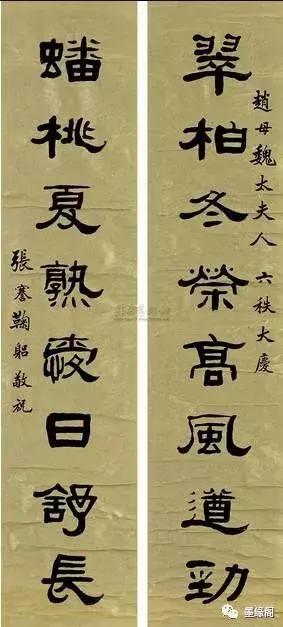 趙母魏太夫人 六秩大慶
翠柏冬榮高風遒勁
蟠桃夏熟愛日舒長
張謇鞠躬敬祝
墨緣閣